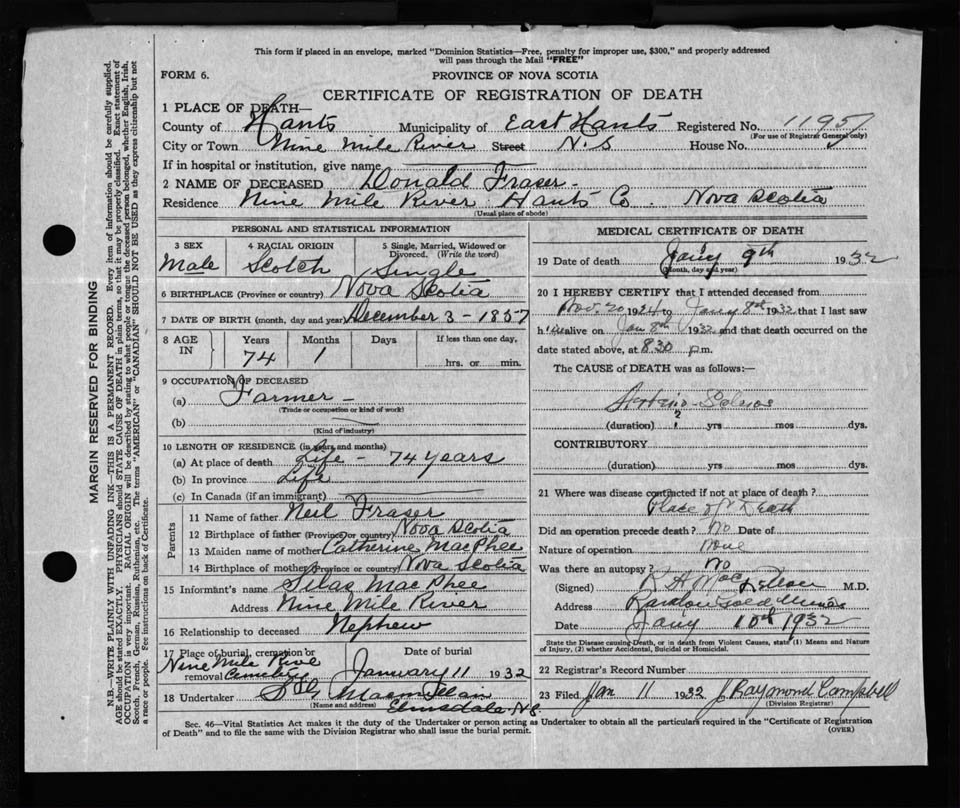 This form if placed in an envelope, marked "Dominion Statistics—Free, penalty for improper use, $300," and properly addressed
will pass through the Mail "FREE"
FORM 6.
PROVINCE OF NOVA SCOTIA
CERTIFICATE OF REGISTRATION OF DEATH
1 PLACE OF DEATH—
County of Hants Municipality of East Hants Registered No. 1195
(For use of Registrar General only)
City or Town Nine Mile River Street N.S House No.
If in hospital or institution, give name
2 NAME OF DECEASED Donald Fraser -
Residence Nine Mile River Hants Co. Nova Scotia
(Usual place of abode)
PERSONAL AND STATISTICAL INFORMATION
3 SEX 4 RACIAL ORIGIN 5 Single, Married, Widowed or
Divorced. (Write the word)
Male Scotch Single
6 BIRTHPLACE (Province or country) Nova Scotia
7 DATE OF BIRTH (month, day and year) December 3 - 1857
8 AGE IN Years Months Days If less than one day,
74 1 hrs. or min.
9 OCCUPATION OF DECEASED
(a) Farmer -
(Trade or occupation or kind of work)
(b)
(Kind of industry)
10 LENGTH OF RESIDENCE (in years and months)
(a) At place of death Life - 74 years
(b) In province Life
(c) In Canada (if an immigrant)
Parents
11 Name of father Neil Fraser
12 Birthplace of father (Province or country) Nova Scotia
13 Maiden name of mother Catherine MacPhee
14 Birthplace of mother (Province or country) Nova Scotia
15 Informant's name Silas MacPhee
Address Nine Mile River
16 Relationship to deceased Nephew
17 Place of burial, cremation or removal Date of burial
Nine Mile Rive Cemetery January 11 1932
18 Undertaker MacMillan
(Name and address) Elmsdale N.S.
MEDICAL CERTIFICATE OF DEATH
19 Date of death Jan'y 9th 1932
(Month, day and year)
20 I HEREBY CERTIFY that I attended deceased from
Nov. 20 1924 to Jany 8th 1932 that I last saw
him alive on Jan 8th 1932 and that death occurred on the
date stated above, at 8.30 p.m.
The CAUSE of DEATH was as follows:—
(duration) 2 yrs mos dys.
CONTRIBUTORY
(duration) yrs mos dys.
21 Where was disease contracted if not at place of death?
Place of Death
Did an operation precede death? No Date of
Nature of operation None
Was there an autopsy? No
(Signed) R A Mac M.D.
Address Rawdon Gold Mines
Date Jan'y 10th 1932
State the Disease causing Death, or in death from Violent Causes, state (1) Means and Nature
of Injury, (2) whether Accidental, Suicidal or Homicidal.
22 Registrar's Record Number
23 Filed Jan 11 1932 J Raymond Campbell
(Division Registrar)
Sec. 46—Vital Statistics Act makes it the duty of the Undertaker or person acting as Undertaker to obtain all the particulars required in the "Certificate of Registration
of Death" and to file the same with the Division Registrar who shall issue the burial permit.
(OVER)
MARGIN RESERVED FOR BINDING
N.B.—WRITE PLAINLY WITH UNFADING INK—THIS IS A PERMANENT RECORD. Every item of information should be carefully supplied.
AGE should be stated EXACTLY. PHYSICIANS should STATE CAUSE OF DEATH in plain terms, so that it may be properly classified. Exact statement of
OCCUPATION is very important. RACIAL ORIGIN will be described by stating to what people or tongue the deceased person belonged, whether English, Irish,
Scotch, French, German, Russian, Ruthenian, etc. The terms "AMERICAN" or "CANADIAN" SHOULD NOT BE USED as they express citizenship but not
a race or people. Fee instructions on back of Certificate.